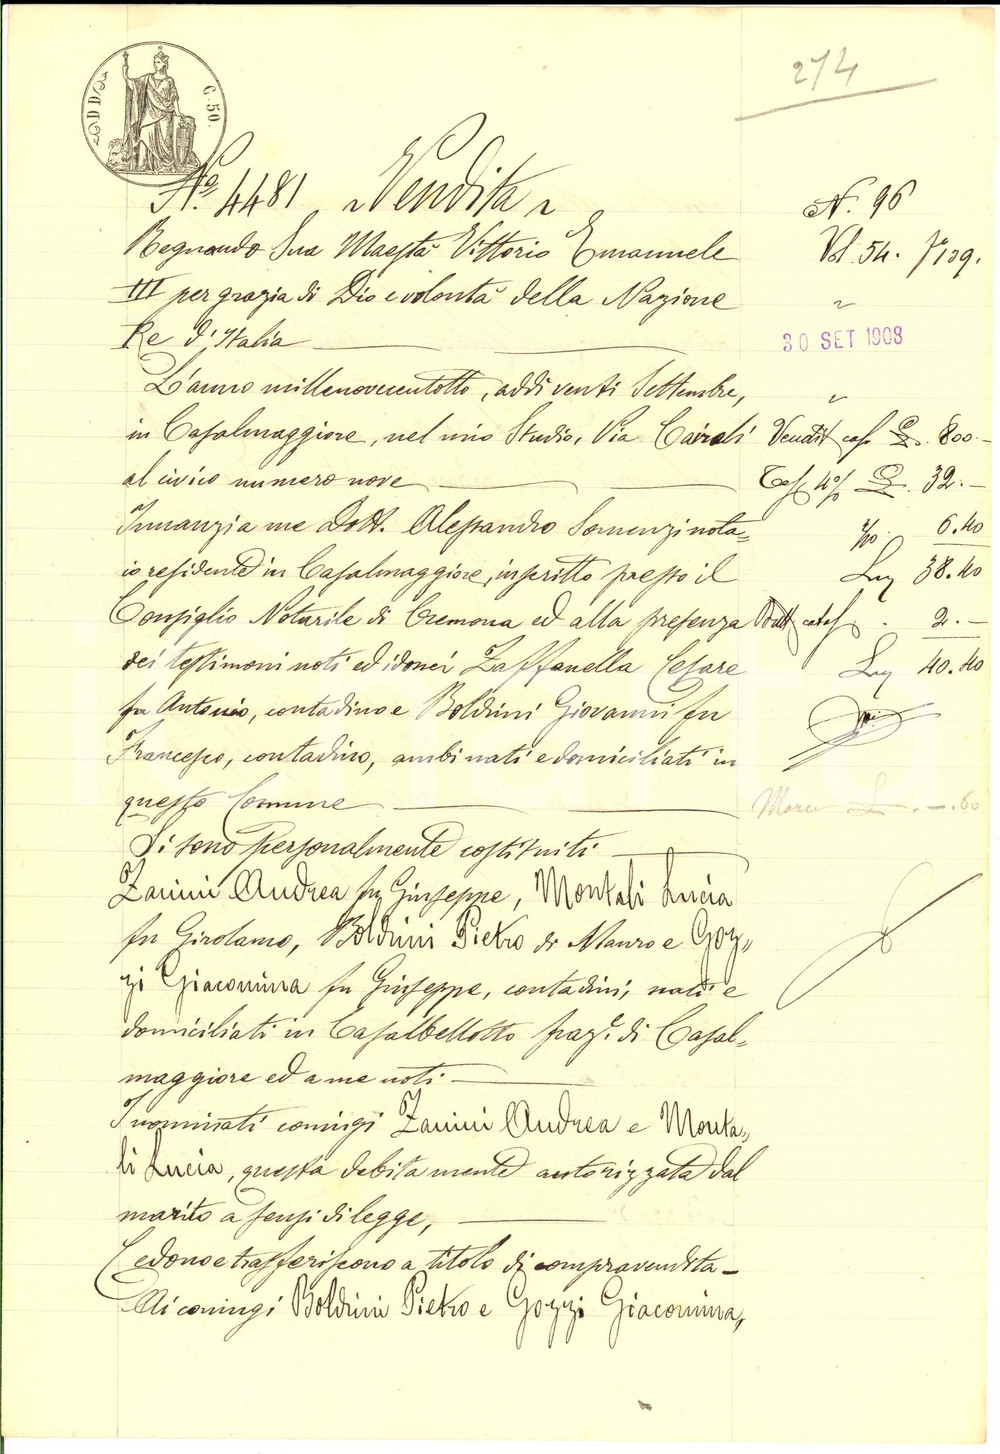 274
DD
C. 50.
No. 4481 Vendita
Regnando Sua Maestà Vittorio Emanuele
III per grazia di Dio e volontà della Nazione
Re d'Italia
L'anno millenovecentotto, addì venti Settembre,
in Casalmaggiore, nel mio Studio, Via Cairoli
al civico numero nove
Innanzi a me Dott. Alessandro Somenzi nota=
io residente in Casalmaggiore, inscritto presso il
Consiglio Notarile di Cremona ed alla presenza
dei testimoni noti ed idonei Zaffanella Cesare
fu Antonio, contadino e Boldrini Giovanni fu
Francesco, contadino, ambi nati e domiciliati in
questo Comune
Si sono personalmente costituiti
Zanini Andrea fu Giuseppe, Montali Lucia
fu Girolamo, Boldrini Pietro di Mauro e Goz=
zi Giacomina fu Giuseppe, contadini, nati e
domiciliati in Casalbellotto fraz.e di Casal=
maggiore ed a me noti
I nominati coniugi Zanini Andrea e Monta=
li Lucia, questa debitamente autorizzata dal
marito a sensi di legge,
Cedono e trasferiscono a titolo di compravendita
Ai coniugi Boldrini Pietro e Gozzi Giacomina,
N. 96
Vol. 54. f. 129.
30 SET 1908
Vendit 800.-
4% 32.-
2/10 6.40
38.40
2.-
40.40
-.60